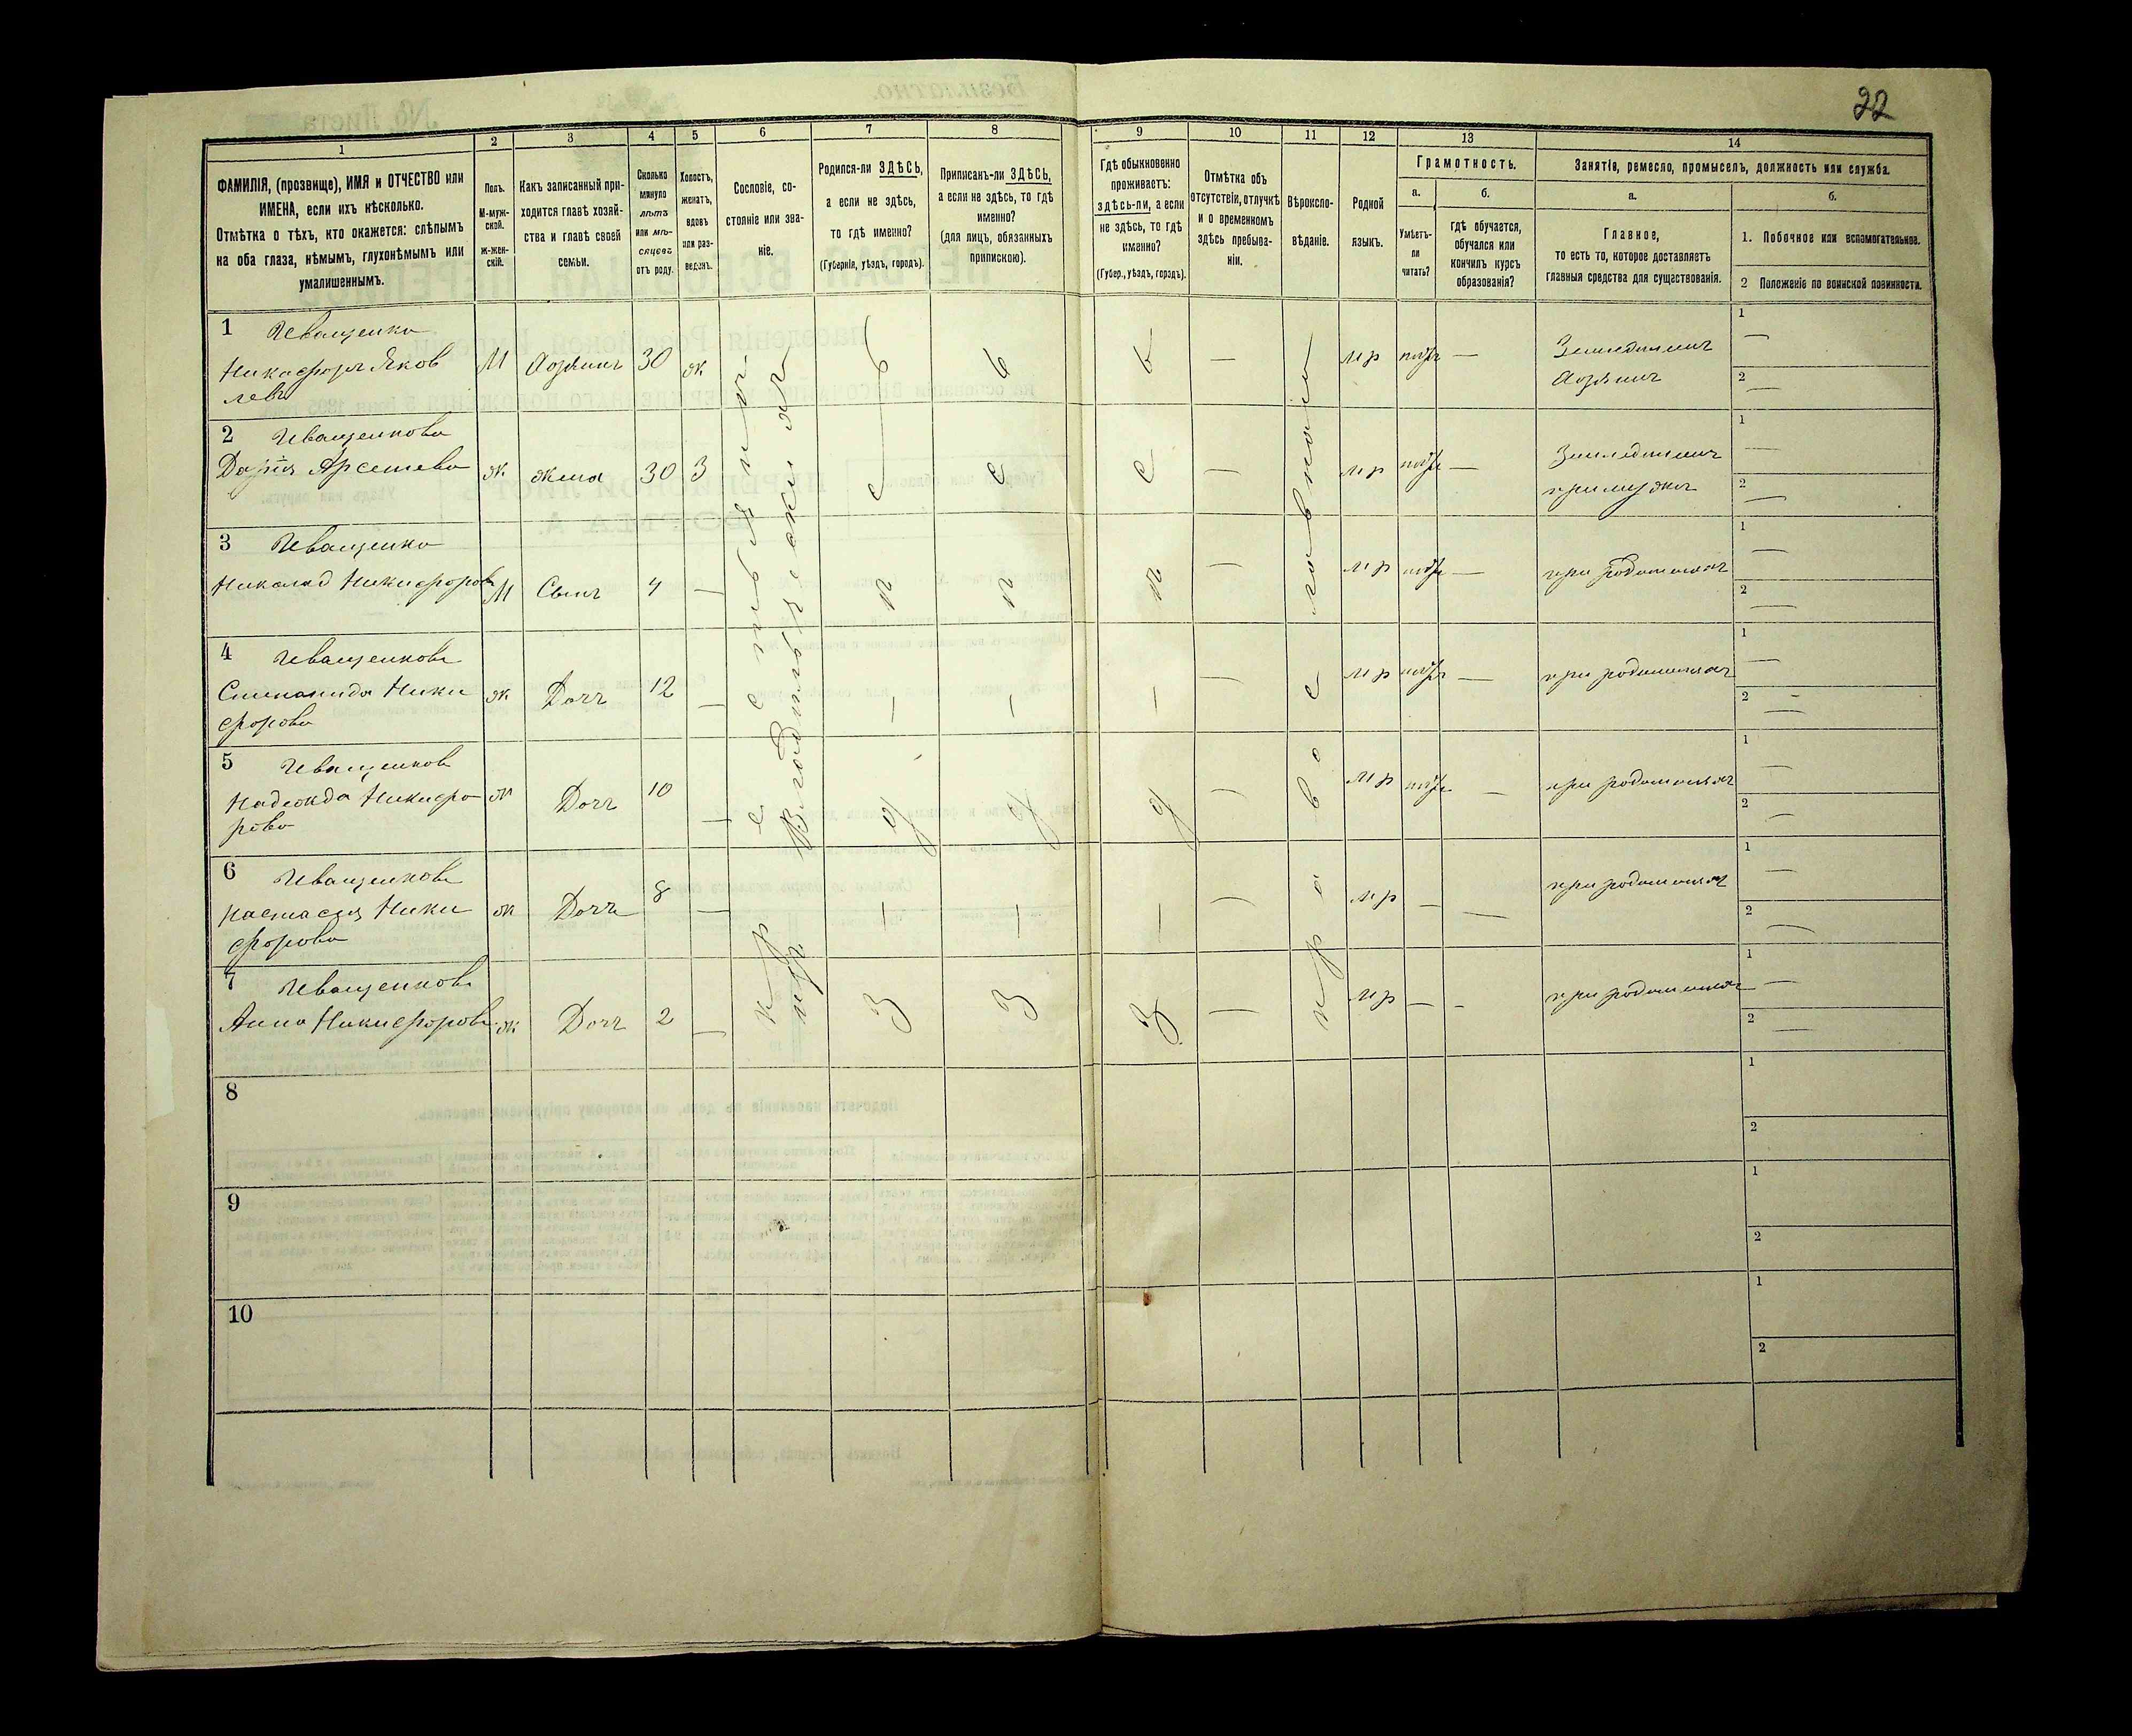 22
1
2
3
4
5
6
7
8
9
10
11
12
13
14
ФАМИЛІЯ, (прозвище), ИМЯ и ОТЧЕСТВО или
ИМЕНА, если ихъ нѣсколько.
Отмѣтка о тѣхъ, кто окажется: слѣпымъ
на оба глаза, нѣмымъ, глухонѣмымъ или
умалишеннымъ.
Полъ.
М-муж-
ской.
Ж-жен-
скій.
Какъ записанный при-
ходится главѣ хозяй-
ства и главѣ своей
семьи.
Сколько
минуло
лѣтъ
или мѣ-
сяцевъ
отъ роду.
Холостъ,
женатъ,
вдовъ
или раз-
веденъ.
Сословіе, со-
стояніе или зва-
ніе.
Родился-ли ЗДѢСЬ,
а если не здѣсь,
то гдѣ именно?
(Губернія, уѣздъ, городъ).
Приписанъ-ли ЗДѢСЬ,
а если не здѣсь, то гдѣ
именно?
(для лицъ, обязанныхъ
припискою).
Гдѣ обыкновенно
проживаетъ:
здѣсь-ли, а если
не здѣсь, то гдѣ
именно?
(Губер., уѣздъ, городъ).
Отмѣтка объ
отсутствіи, отлучкѣ
и о временномъ
здѣсь пребыва-
ніи.
Вѣроиспо-
вѣданіе.
Родной
языкъ.
Грамотность.
а.
Умѣетъ-
ли
читать?
б.
Гдѣ обучается,
обучался или
кончилъ курсъ
образованія?
Занятія, ремесло, промыселъ, должность или служба.
а.
Главное,
то есть то, которое доставляетъ
главныя средства для существованія.
б.
1. Побочное или вспомогательное.
2 Положеніе по воинской повинности.
1 Иващенко
Никифоръ Яков
левъ
М Хозяинъ 30 ж — мр Земледѣлецъ
Хозяинъ
1 —
2 —
2 Иващенкова
Дарія Арсенева
ж жена 30 З — мр — Земледѣлецъ
при мужѣ
1 —
2 —
3 Иващенко
Николай Никифоровъ
М Сынъ 4 — — мр — при родителяхъ
1 —
2 —
4 Иващенкова
Степанида Ники
форова
ж Дочь 12 — — мр — при родителяхъ
1 —
2 —
5 Иващенкова
Надежда Никифо
рова
ж Дочь 10 — — мр — при родителяхъ
1 —
2 —
6 Иващенкова
Настасия Ники
форова
ж Дочь 8 — — мр — — при родителяхъ
1 —
2 —
7 Иващенкова
Анна Никифорова
ж Дочь 2 — — мр — - при родителяхъ
1 —
2 —
здѣсь
здѣсь
здѣсь
православное
8
1
2
9
1
2
10
1
2